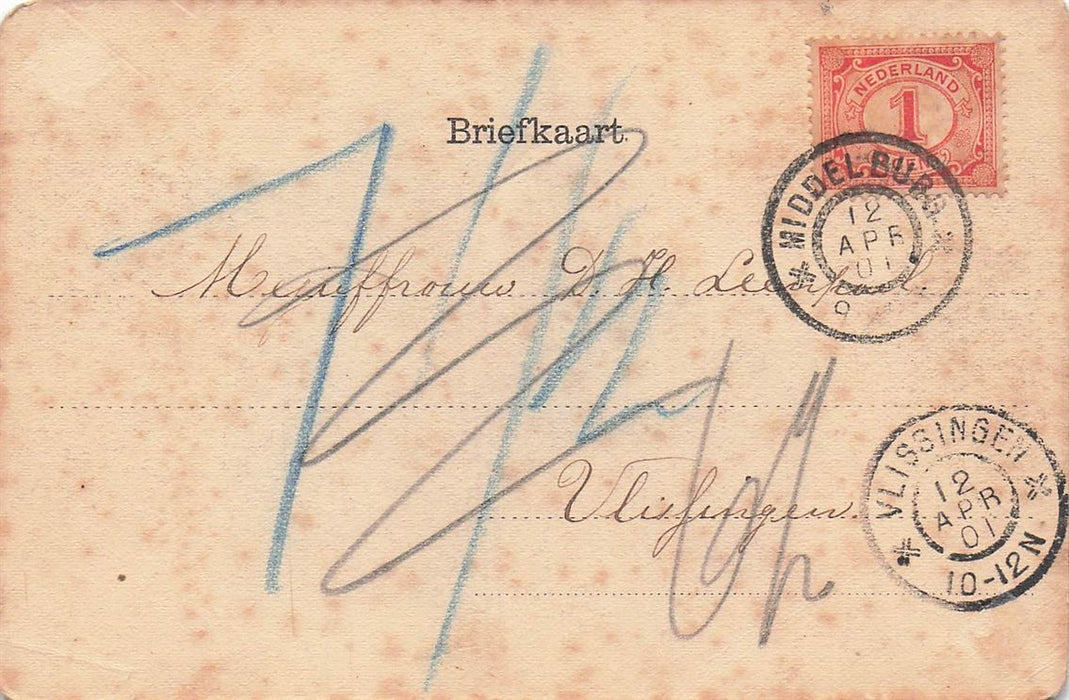 Briefkaart
NEDERLAND
1
MIDDELBURG
12
APR
01
9
Mejuffrouw D. H.
Vlissingen.
VLISSINGEN
12
APR
01
10-12N